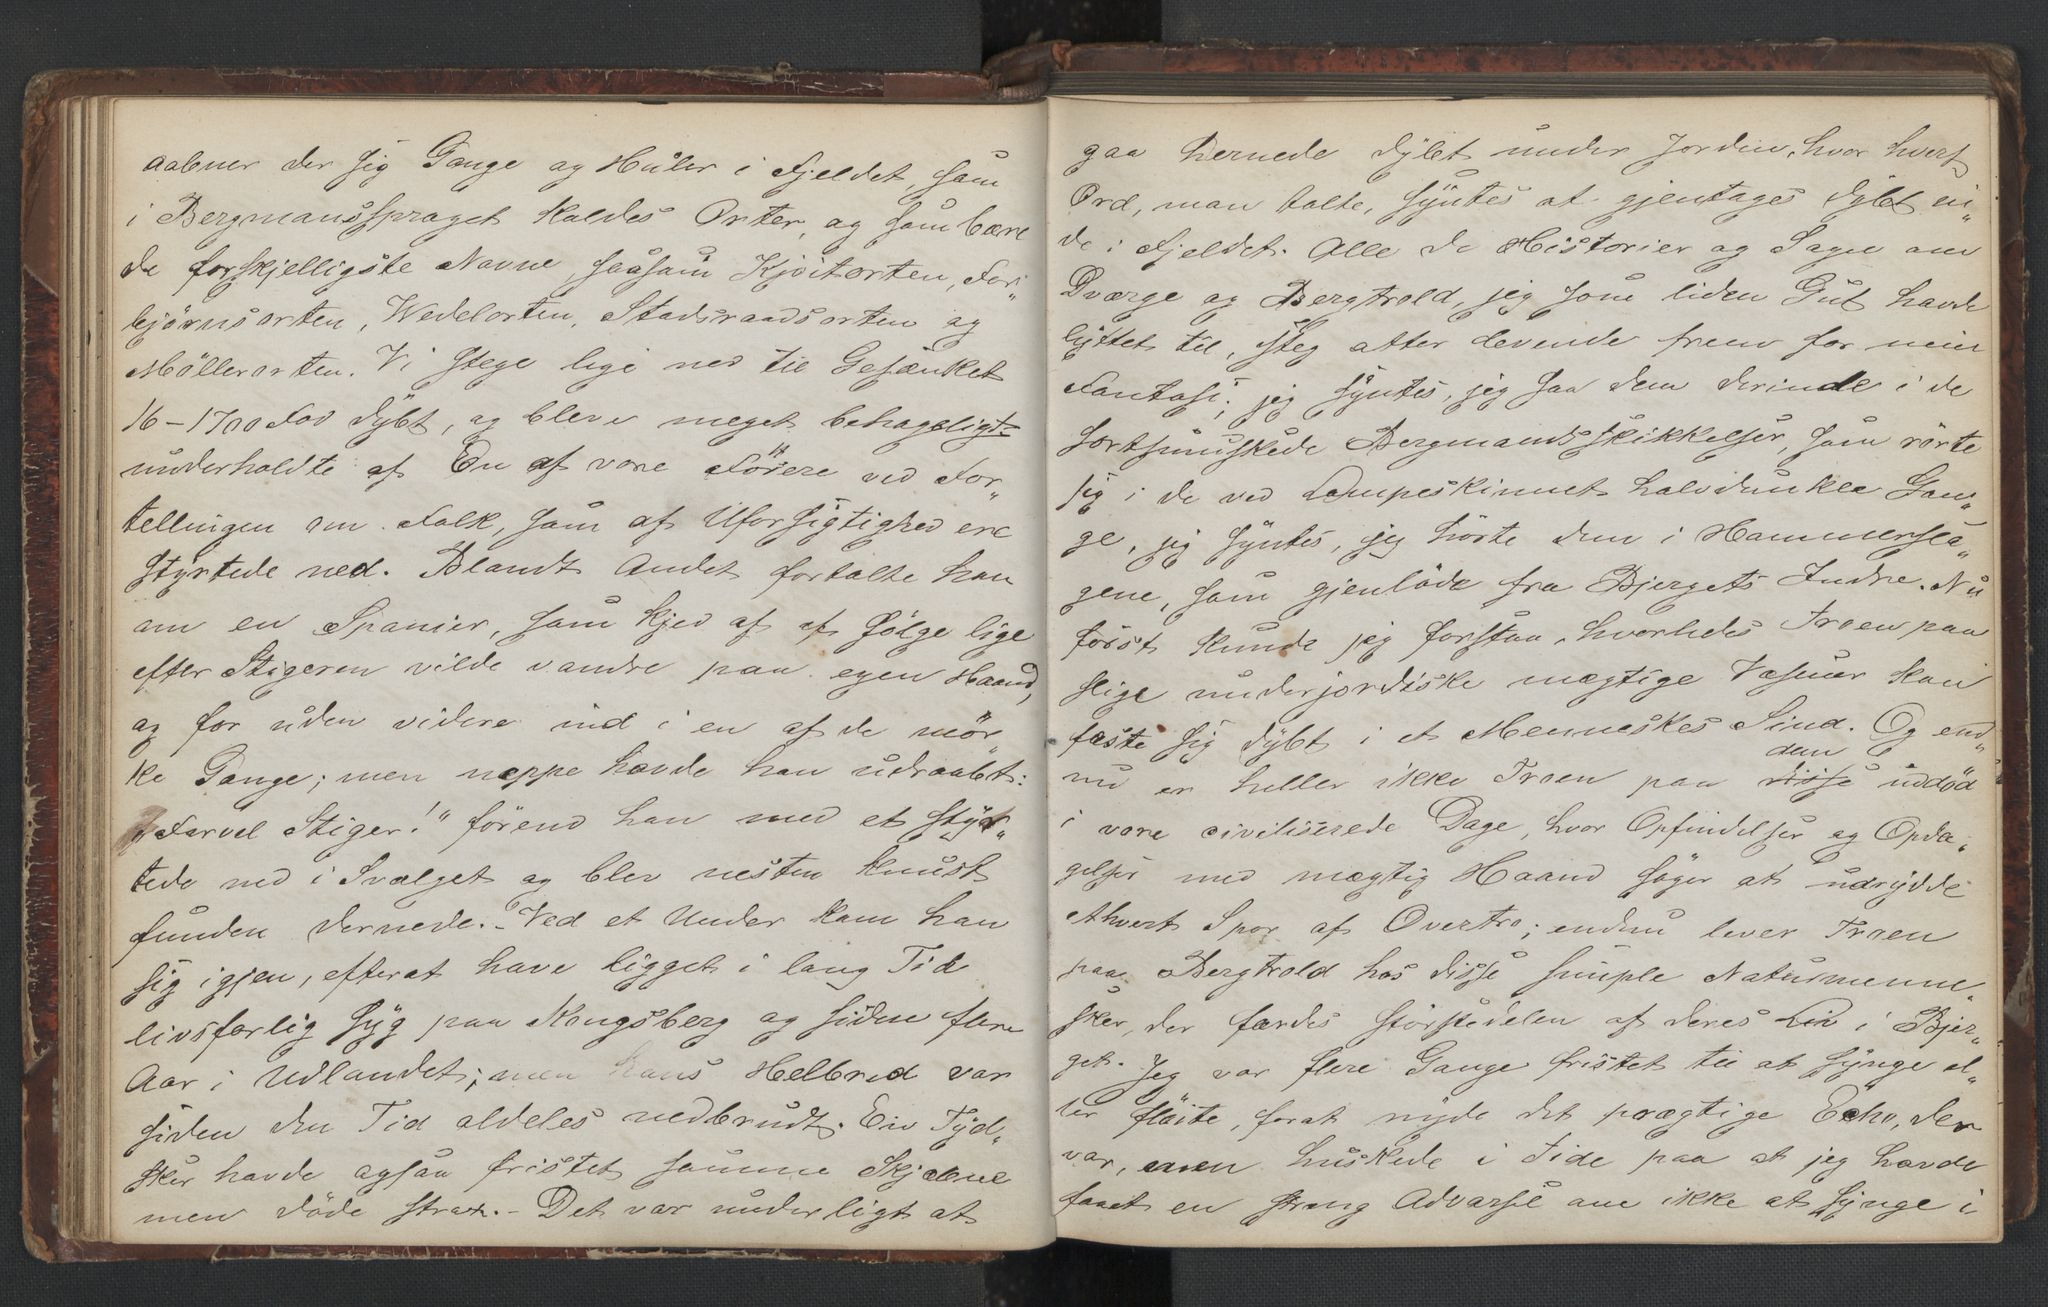 aabner der sig Gange og Huler i Fjeldet, som
i Bergmanssproget kaldes Orter, og som bære
de forskjelligste Navne, saasom Kjvitorten, For„
björnsorten, Wedelorten, Stadsraadsorten og
Möllerorten. Vi stege lige ned til Gesænket
16-1700 Fod dybt, og bleve meget behageligt
underholdte af En af vore Förere ved For„
tellingen om Folk, som af Uforsigtighed ere
styrtede ned. Blandt Andet fortalte han
om en Spanier, som kjed af at fölge lige
efter Stigeren vilde vandre paa egen Haand,
og for uden videre ind i en af de mör„
ke Gange; men neppe havde han udraabt:
„Farvel Stiger!" förend han med et styr„
tede ned i Svælget og blev nesten knust
funden dernede. Ved et Under kom han
sig igjen, efterat have ligget i lang Tid
livsfarlig syg paa Kongsberg og siden flere
Aar i Udlandet; men hans Helbred var
siden den Tid aldeles nedbrudt. En Tyd„
sker havde ogsaa fristet samme Skjæbne
men döde strax. - Det var underligt at
gaa hernede dybt under Jorden, hvor hvert
Ord, man talte, syntes at gjentages dybt in„
de i Fjeldet. Alle de Historier og Sagn om
Dværge og Bergtrold, jeg som liden Gut havde
lyttet til, steg atter levende frem for min
Fantasi; jeg syntes, jeg saa dem derinde i de
sortsmuskede Bergmandsskikkelser, som rörte
sig i de ved Lampeskinnet halvdunkle Gan„
ge, jeg syntes, jeg hörte dem i Hammersla„
gene, som gjenlöde fra Bjergets Indre. Nu
först kunde jeg forstaa, hvorledes Troen paa
slige underjordiske mægtige Væsner kan
fæste sig dybt i et Menneskes Sind. Og end„
dem
nu er heller ikke Troen paa disse uddöd
i vore civiliserede Dage, hvor Opfindelser og Opda„
gelser med mægtig Haand söger at udrydde
ethvert Spor af Overtro; endnu lever Troen
paa Bergtrold hos disse simple Naturmenne„
sker, der færdes störstedelen af deres Liv i Bjer„
get. Jeg var flere Gange fristet til at synge el„
ler flöite, forat nyde det prægtige Echo, der
var, men huskede i Tide paa at jeg havde
faaet en streng Advarsel om ikke at synge i